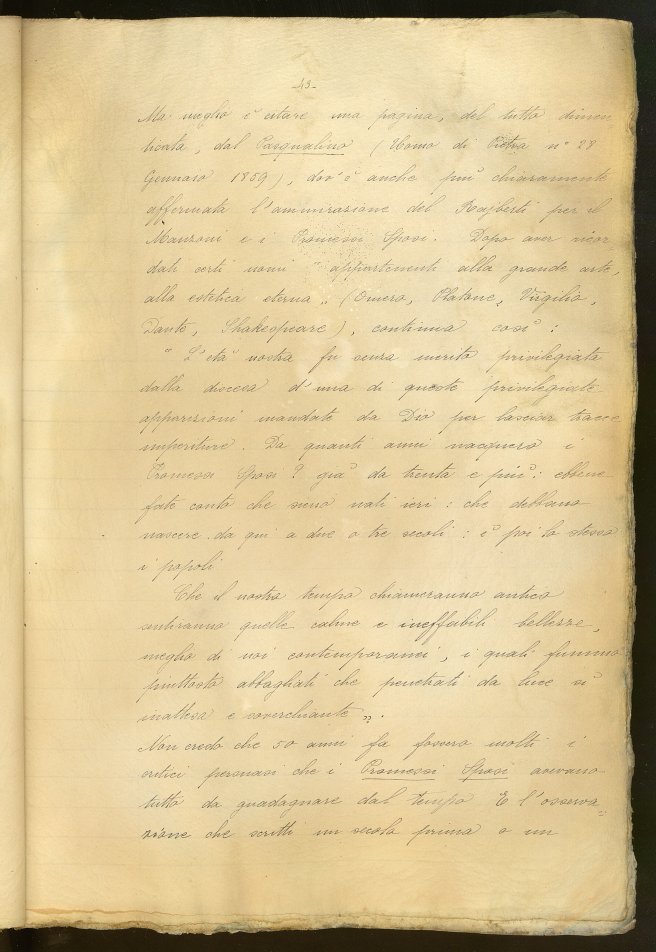 -43-
Ma meglio è citare una pagina, del tutto dimen
ticata, dal Pasqualino (Uomo di Pietra n° 28
Gennaio 1859), dov'è anche più chiaramente
affermata l'ammirazione del Rajberti per il
Manzoni e i Promessi Sposi. Dopo aver ricor
dati certi nomi "appartenenti alla grande arte,
alla estetica eterna" (Omero, Platone, Virgilio,
Dante, Shakespeare), continua così:
"L'età nostra fu senza merito privilegiata
dalla discesa d'una di queste privilegiate
apparizioni mandate da Dio per lasciar tracce
imperiture. Da quanti anni nacquero i
Promessi Sposi? già da trenta e più: ebbene
fate conto che sieno nati ieri: che debbano
nascere da qui a due o tre secoli: è poi lo stesso
i popoli
Che il nostro tempo chiameranno antico
sentiranno quelle calme e ineffabili bellezze,
meglio di noi contemporanei, i quali fummo
piuttosto abbagliati che penetrati da luce sì
inattesa e soverchiante".
Non credo che 50 anni fa fossero molti i
critici persuasi che i Promessi Sposi avevano
tutto da guadagnare dal tempo E l'osserva
zione che scritti un secolo prima o un